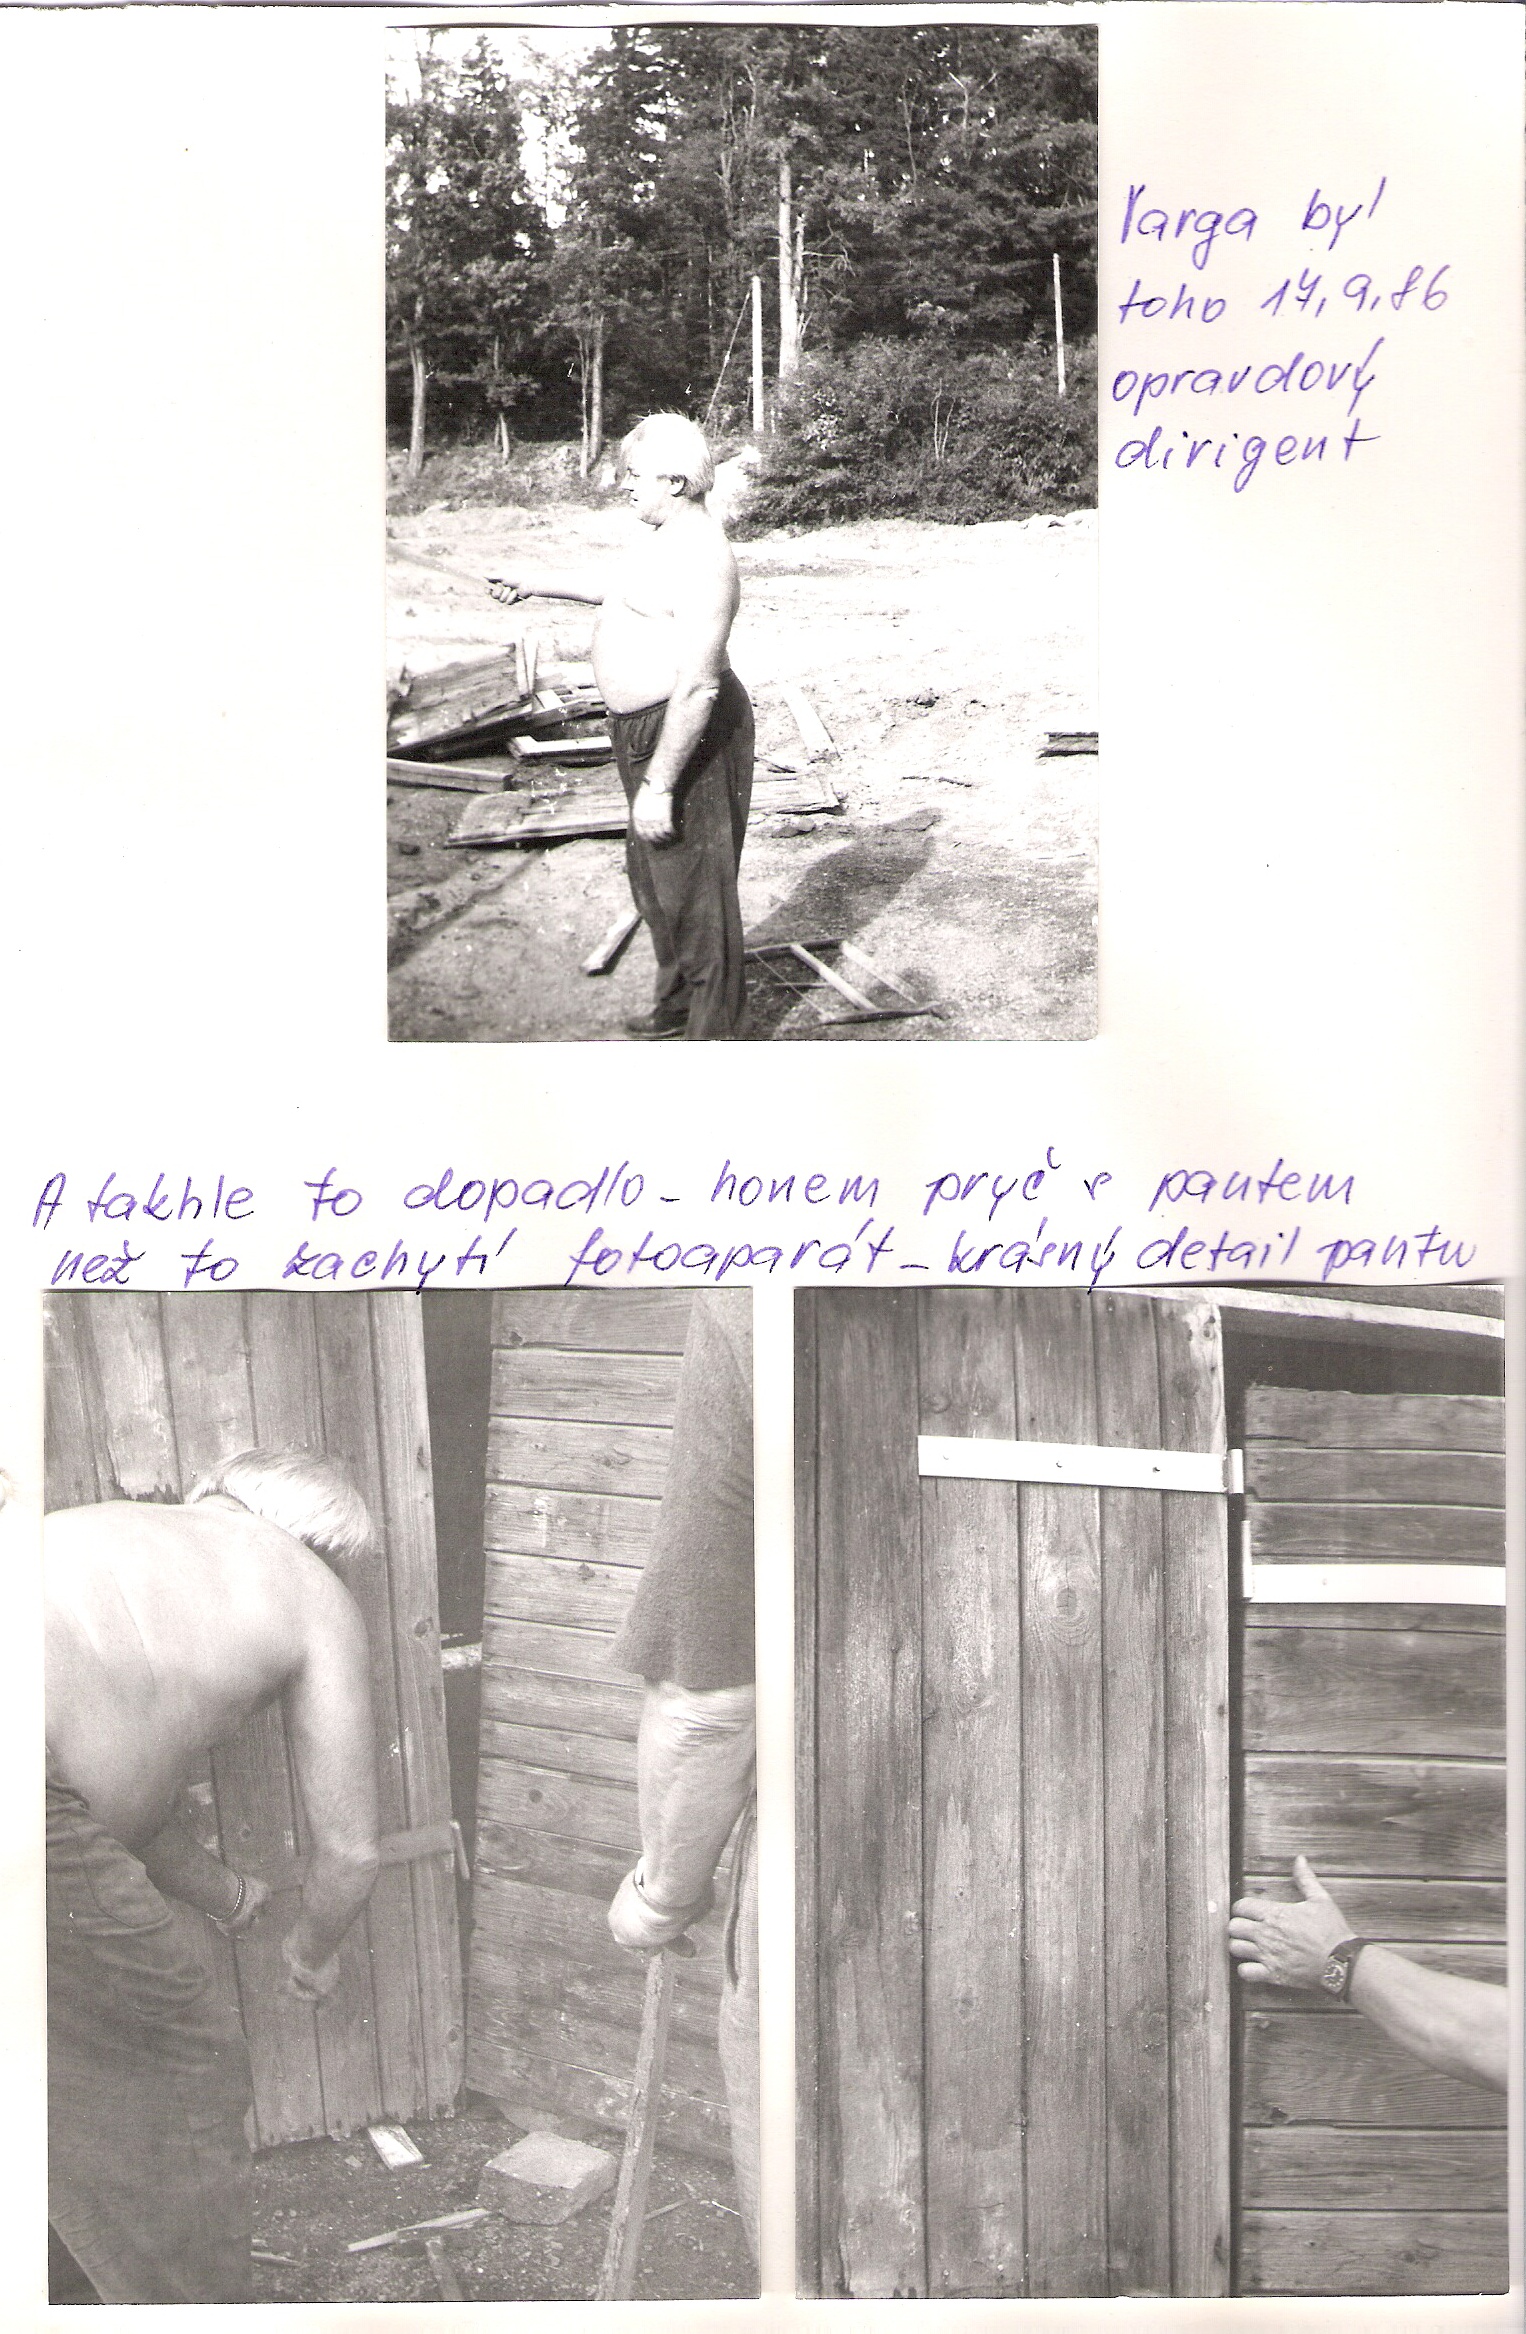 Varga byl
toho 17.9.86
opravdový
dirigent
A takhle to dopadlo - honem pryč s pantem
než to zachytí fotoaparát - krásný detail pantu